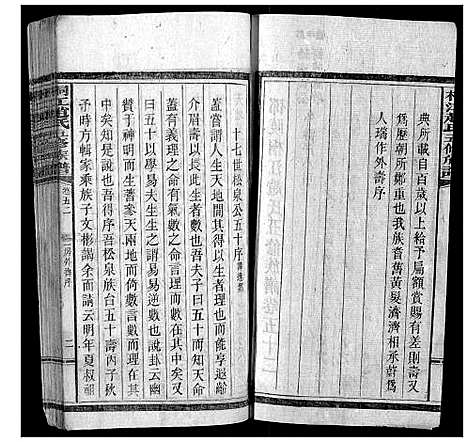 典所載自百歲以上給予匾額賞賜有差則壽
爲歷朝所鄭重也我族耆舊黃髮濟濟相承將爲
人瑞作外壽序
十七世松泉公五十序
蓋嘗謂人生天地間其得以生者理也而能享遐齡
介眉壽者此生生者數也吾夫子曰五十而知天命
蓋有義理之命有氣數之命言理而數在其中矣又
曰五十以學易夫生生之謂易易逆數也說卦云幽
贊于神明而生蓍參天兩地而倚數言數而理在其
中矣知此始可序吾松泉族台五十壽矣丙子秋
予時方輯家乘族子文彬謁余而請云明年夏叔祖
卷五十二
外壽序
二